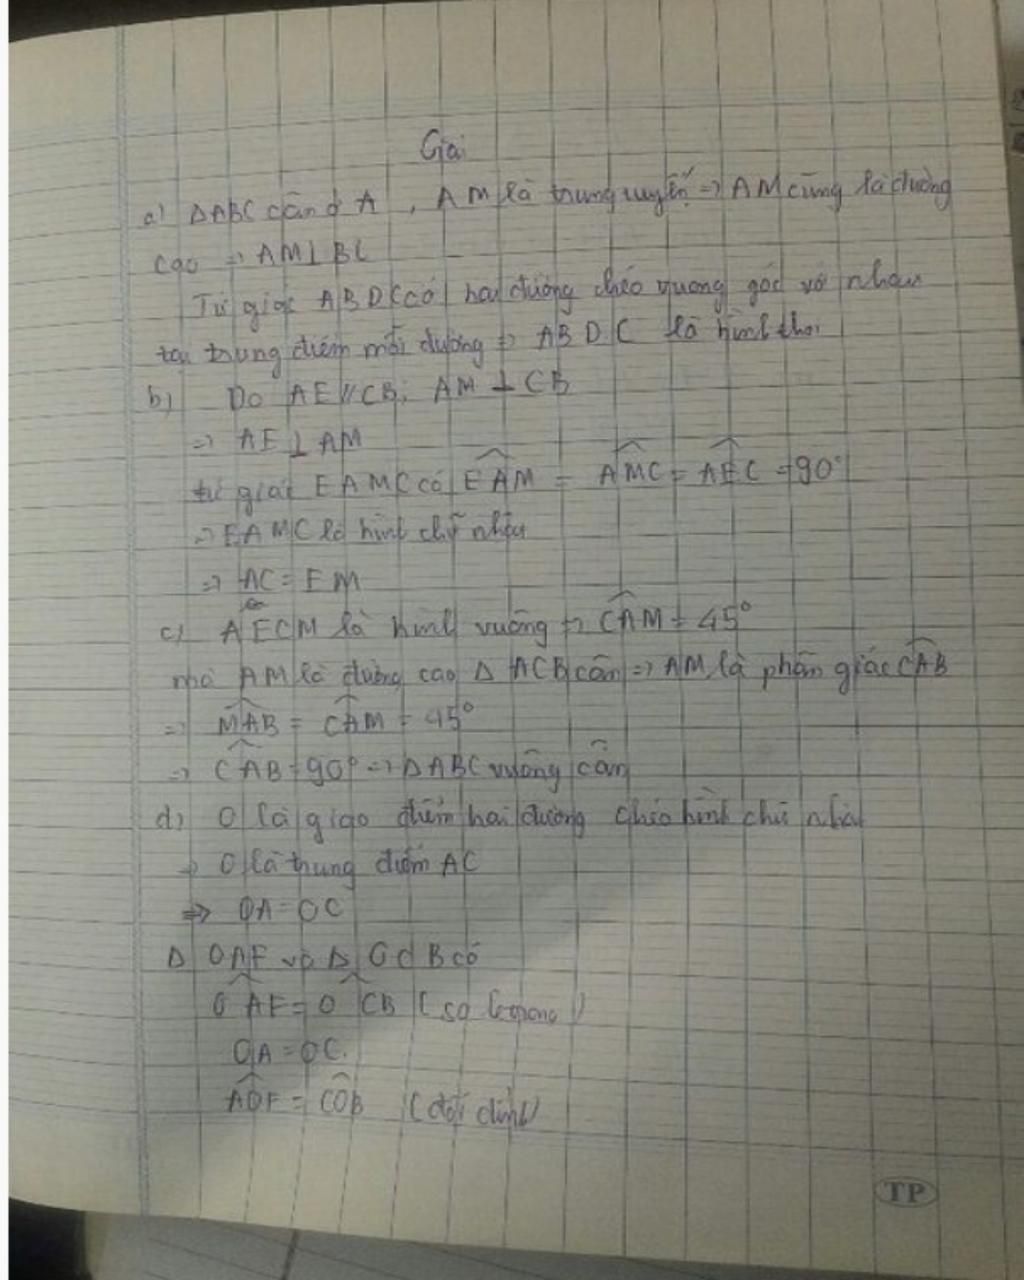 Giải
a) ΔABC cân ở A, AM là trung tuyến ⇒ AM cũng là đường
cao ⇒ AM⊥BC
Tứ giác ABDC có hai đường chéo vuông góc với nhau
tại trung điểm mỗi đường ⇒ ABDC là hình thoi
b) Do AE//CB; AM ⊥ CB
⇒ AE⊥AM
tứ giác EAMC có EAM = AMC = AEC = 90°
⇒ EAMC là hình chữ nhật
⇒ AC = EM
c) AECM là hình vuông ⇒ CAM = 45°
mà AM là đường cao Δ ACB cân ⇒ AM là phân giác CAB
⇒ MAB = CAM = 45°
⇒ CAB = 90° ⇒ ΔABC vuông cân
d) O là giao điểm hai đường chéo hình chữ nhật
⇒ O là trung điểm AC
⇒ OA = OC
Δ OAF và Δ OCB có
OAF = OCB (so le trong)
OA = OC.
AOF = COB (đối đỉnh)
TP